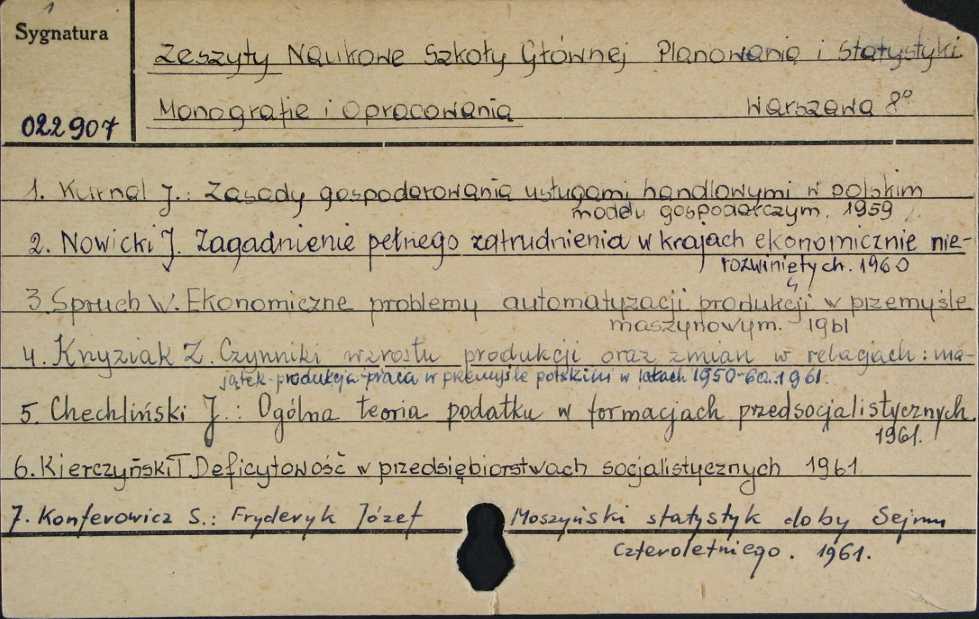 1
Sygnatura
Zeszyty Naukowe Szkoły Głównej Planowania i Statystyki
Monografie i Opracowania Warszawa 8°
022907
1. Kurnal J.: Zasady gospodarowania usługami handlowymi w polskim
modelu gospodarczym. 1959
2. Nowicki J. Zagadnienie pełnego zatrudnienia w krajach ekonomicznie nie-
rozwiniętych. 1960
3. Spruch W. Ekonomiczne problemy automatyzacji produkcji w przemyśle
maszynowym. 1961
4. Knyziak Z. Czynniki wzrostu produkcji oraz zmian w relacjach: ma-
jątek-produkcja-praca w przemyśle polskim w latach 1950-60. 1961.
5. Chechliński J.: Ogólna teoria podatku w formacjach przedsocjalistycznych
1961.
6. Kierczyński T Deficytowość w przedsiębiorstwach socjalistycznych 1961
7. Konferowicz S.: Fryderyk Józef Moszyński statystyk doby Sejmu
Czteroletniego. 1961.